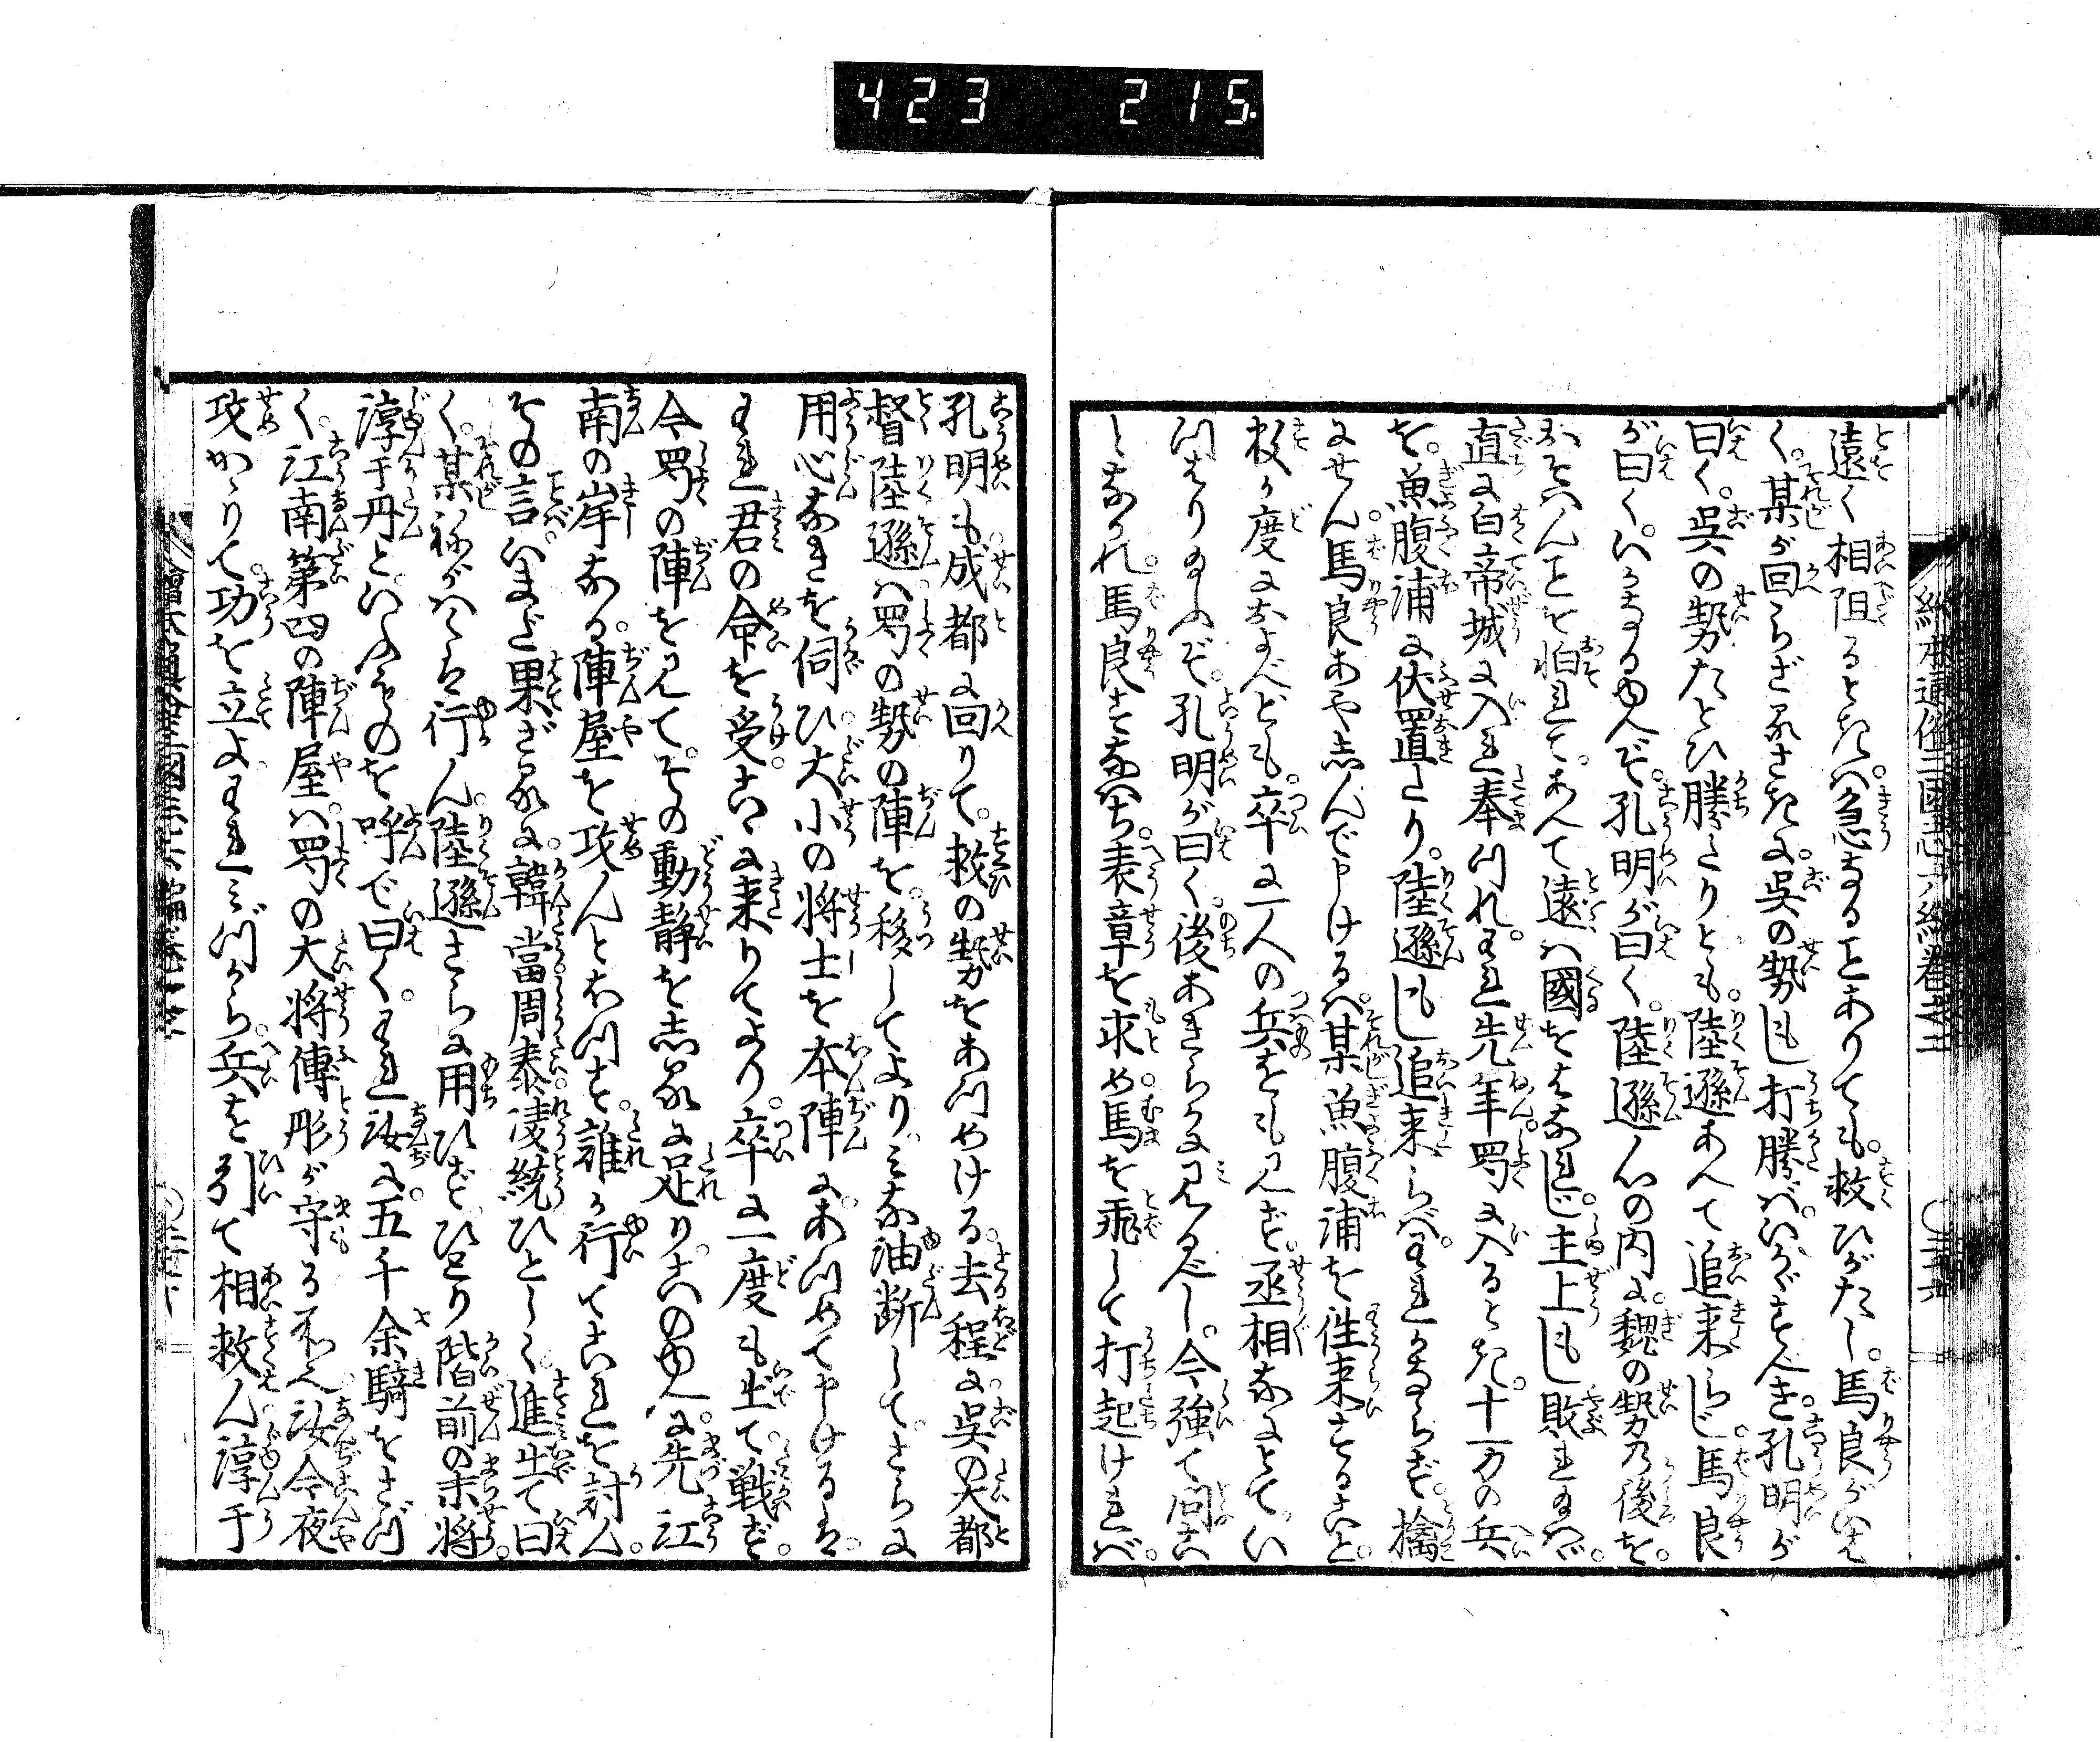 423 215.
遠く相阻るときは。急なることありても。救ひがたし。馬良がいは
く。某が回らざるさきに。吳の勢もし打勝ば。いかゞすべき。孔明が
曰く。吳の勢たとひ勝たりとも。陸遜あへて追来らじ。馬良
が曰く。いかなるゆへぞ。孔明が曰く。陸遜心の内に。魏の勢乃後を。
おそはんことを怕れて。あへて遠くは國をはなれじ。主上もし敗れ玉はゞ。
直に白帝城に入れ奉つれ。われ先年蜀に入るとき。十万の兵
を。魚腹浦に伏置たり。陸遜もし追来らば。われかならず。擒
にせん。馬良あやしんで申けるは。某魚腹浦を徃来すること。
数ヶ度におよべども。卒に一人の兵をも見ず。丞相なにとてい
つはり玉ふぞ。孔明が曰く。後あきらかに見るべし。今強て問こ
となかれ。馬良すなはち。表章を求め。馬を飛して打起ければ。
孔明も。成都に回りて。救の勢をあつめける。去程に。吳の大都
督陸遜は。蜀の勢の陣を。移してより。みな油断して。さらに
用心なきを伺ひ。大小の将士を本陣に。あつめて申けるは。
われ君の命を受。こゝに来りてより。卒に一度も出て。戦ず。
今蜀の陣を見て。その動静をしるに足り。このゆへに。先江
南の岸なる。陣屋を攻んとおつす。誰か行てこれを討ん。
その言。いまだ果ざるに。韓當。周泰。凌統ひとしく。進出て曰
く。某ねがはくは行ん。陸遜さらに用ひず。ひとり階前の末将。
淳于丹といふものを呼で曰く。われ汝に。五千余騎をさづ
く。江南第四の陣屋は。蜀の大将傅彤が守る所也。汝今夜
攻かゝりて。功を立よ。われみづから。兵を引て相救ん。淳于